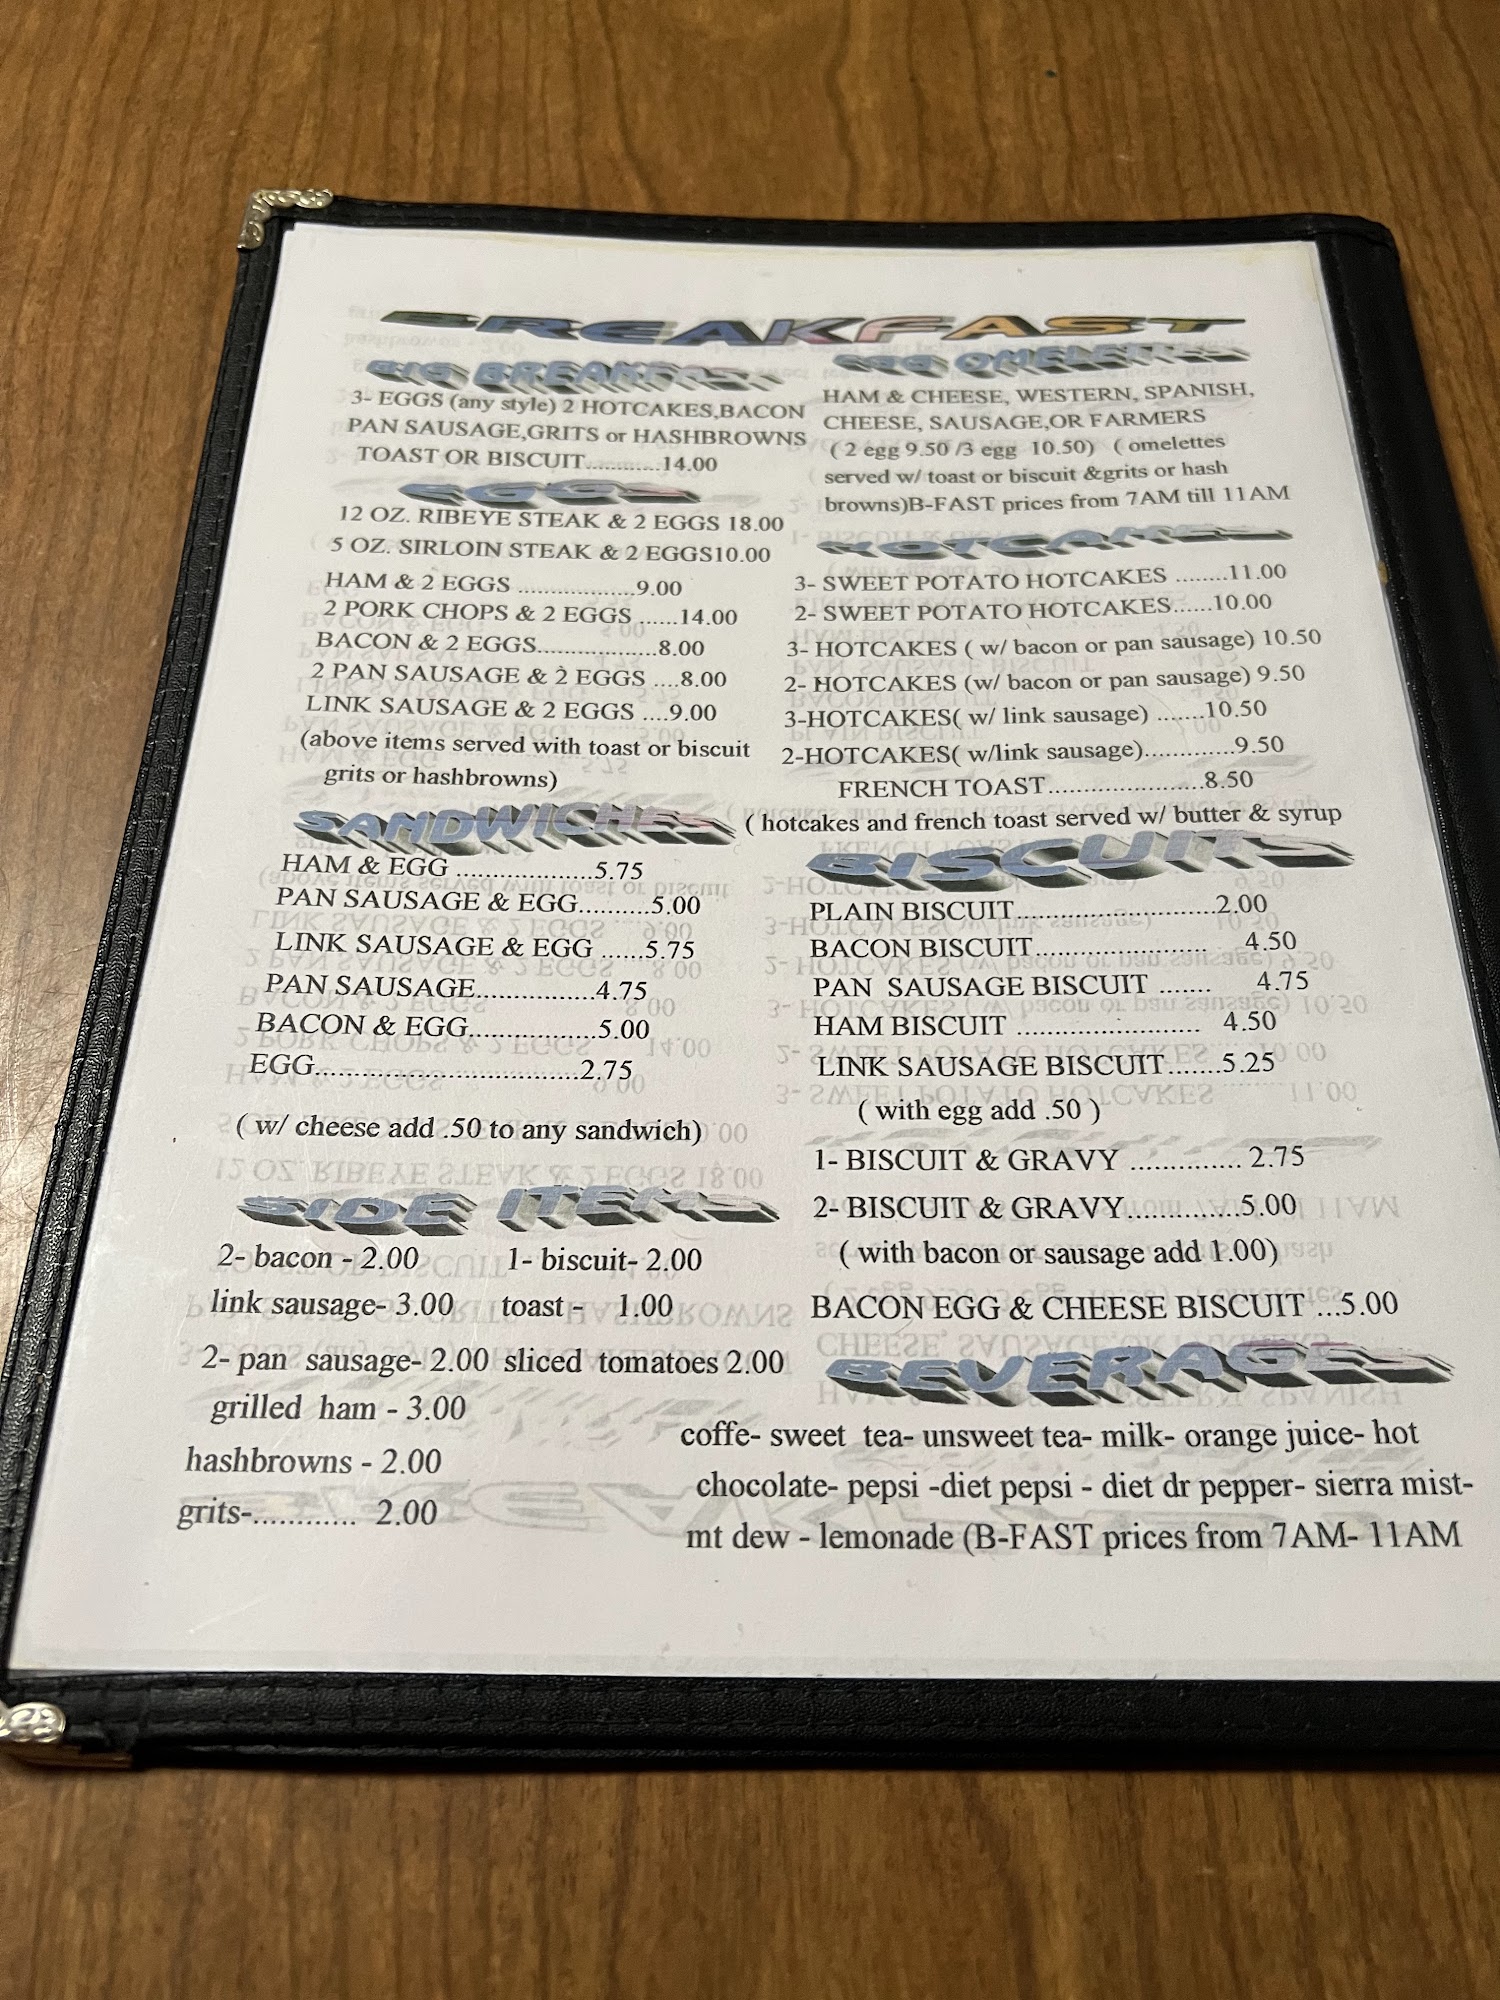 BREAKFAST
BIG BREAKFAST
3- EGGS (any style) 2 HOTCAKES,BACON
PAN SAUSAGE,GRITS or HASHBROWNS
TOAST OR BISCUIT............14.00
EGGS
12 OZ. RIBEYE STEAK & 2 EGGS 18.00
5 OZ. SIRLOIN STEAK & 2 EGGS10.00
HAM & 2 EGGS ...................9.00
2 PORK CHOPS & 2 EGGS ......14.00
BACON & 2 EGGS...................8.00
2 PAN SAUSAGE & 2 EGGS ....8.00
LINK SAUSAGE & 2 EGGS ....9.00
(above items served with toast or biscuit
grits or hashbrowns)
SANDWICHES
HAM & EGG ....................5.75
PAN SAUSAGE & EGG..........5.00
LINK SAUSAGE & EGG ......5.75
PAN SAUSAGE.................4.75
BACON & EGG..................5.00
EGG......................................2.75
( w/ cheese add .50 to any sandwich)
SIDE ITEMS
2- bacon - 2.00 1- biscuit- 2.00
link sausage- 3.00 toast - 1.00
2- pan sausage- 2.00 sliced tomatoes 2.00
grilled ham - 3.00
hashbrowns - 2.00
grits-............ 2.00
EGG OMELETTES
HAM & CHEESE, WESTERN, SPANISH,
CHEESE, SAUSAGE,OR FARMERS
( 2 egg 9.50 /3 egg 10.50) ( omelettes
served w/ toast or biscuit &grits or hash
browns)B-FAST prices from 7AM till 11AM
HOTCAKES
3- SWEET POTATO HOTCAKES ........11.00
2- SWEET POTATO HOTCAKES......10.00
3- HOTCAKES ( w/ bacon or pan sausage) 10.50
2- HOTCAKES (w/ bacon or pan sausage) 9.50
3-HOTCAKES( w/ link sausage) .......10.50
2-HOTCAKES( w/link sausage).............9.50
FRENCH TOAST.......................8.50
( hotcakes and french toast served w/ butter & syrup
BISCUITS
PLAIN BISCUIT............................2.00
BACON BISCUIT........................ 4.50
PAN SAUSAGE BISCUIT ....... 4.75
HAM BISCUIT .......................... 4.50
LINK SAUSAGE BISCUIT.......5.25
( with egg add .50 )
1- BISCUIT & GRAVY .............. 2.75
2- BISCUIT & GRAVY..............5.00
( with bacon or sausage add 1.00)
BACON EGG & CHEESE BISCUIT ...5.00
BEVERAGES
coffe- sweet tea- unsweet tea- milk- orange juice- hot
chocolate- pepsi -diet pepsi - diet dr pepper- sierra mist-
mt dew - lemonade (B-FAST prices from 7AM- 11AM